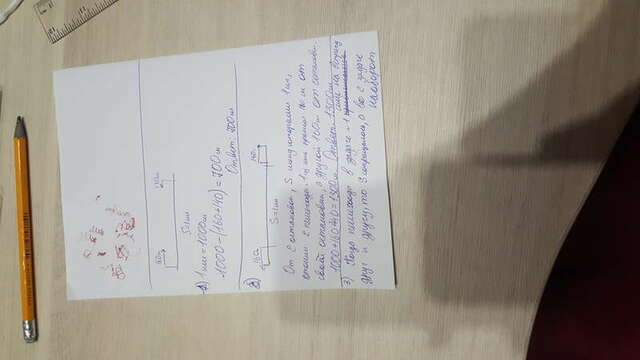 160м 140м
S=1км
1) 1км = 1000м
1000-(160+140)=700м
Ответ: 700м
2)
160м 140м
S=1км
От 2 остановок, S между которыми 1км,
2 пешехода 1-й прошел м от
своей остановки, а другой 160м от остановки.
1000+160+140=1300м Ответ: 1300м
3) Когда пешехода в задаче 1 шли на встречу
друг к другу, то S сокращалось, а во 2 задаче
наоборот